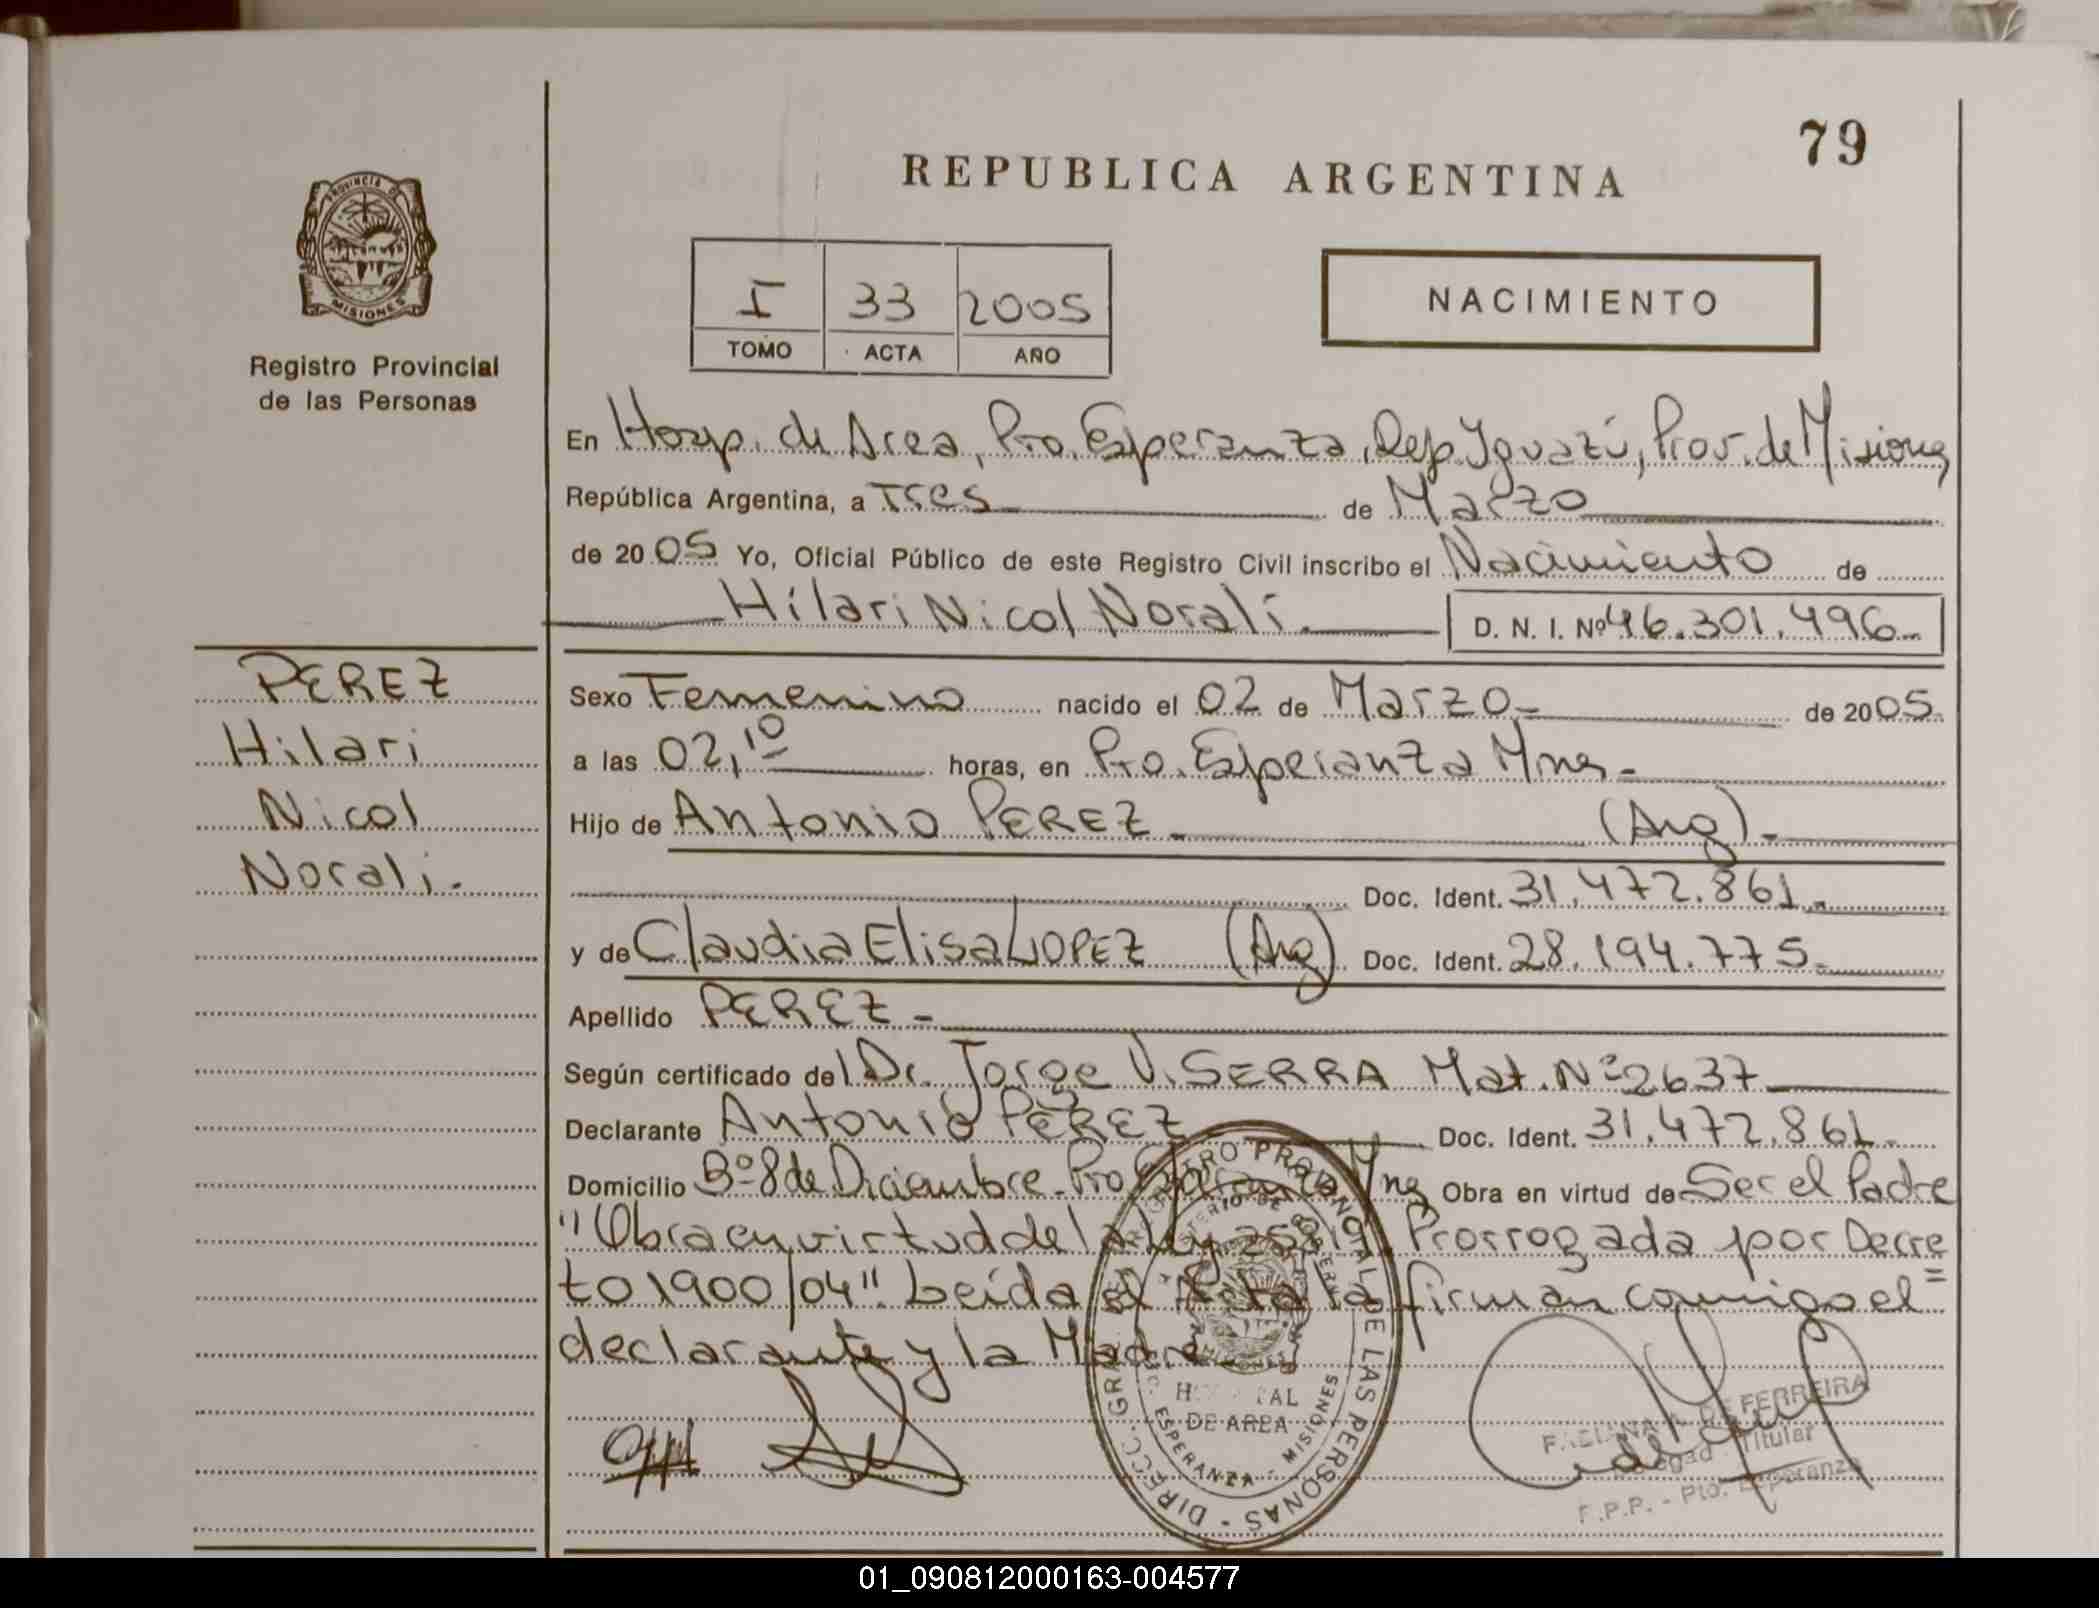 79
REPUBLICA ARGENTINA
PROVINCIA DE
MISIONES
Registro Provincial
de las Personas
I 33 2005
TOMO ACTA AÑO
NACIMIENTO
En Hosp. de Area, Pto. Esperanza, Dep. Iguazú, Prov. de Misiones
República Argentina, a Tres de Marzo
de 2005 Yo, Oficial Público de este Registro Civil inscribo el Nacimiento de
Hilari Nicol Norali. D. N. I. Nº 46.301.496
PEREZ
Hilari
Nicol
Norali.
Sexo Femenino nacido el 02 de Marzo de 2005.
a las 02,10 horas, en Pto. Esperanza Mnes
Hijo de Antonio PEREZ (Arg)
Doc. Ident. 31.472.861.
y de Claudia Elisa LOPEZ (Arg) Doc. Ident. 28.194.775
Apellido PEREZ
Según certificado del Dr. Jorge V. SERRA Mat. Nº 2637
Declarante Antonio PEREZ Doc. Ident. 31.472.861.
Domicilio Bº 8 de Diciembre Pto Mnes Obra en virtud de Ser el Padre
"Obra en virtud de la Ley Prorrogada por Decre
to 1900/04". Leída el Acta la firman conmigo el
declarante y la Madre
DIRECC. GRAL. DEL REGISTRO PROVINCIAL DE LAS PERSONAS
DE AREA
ESPERANZA - MISIONES
DE FERREIRA
Titular
F.P.P. - Pto. Esperanza
01_090812000163-004577